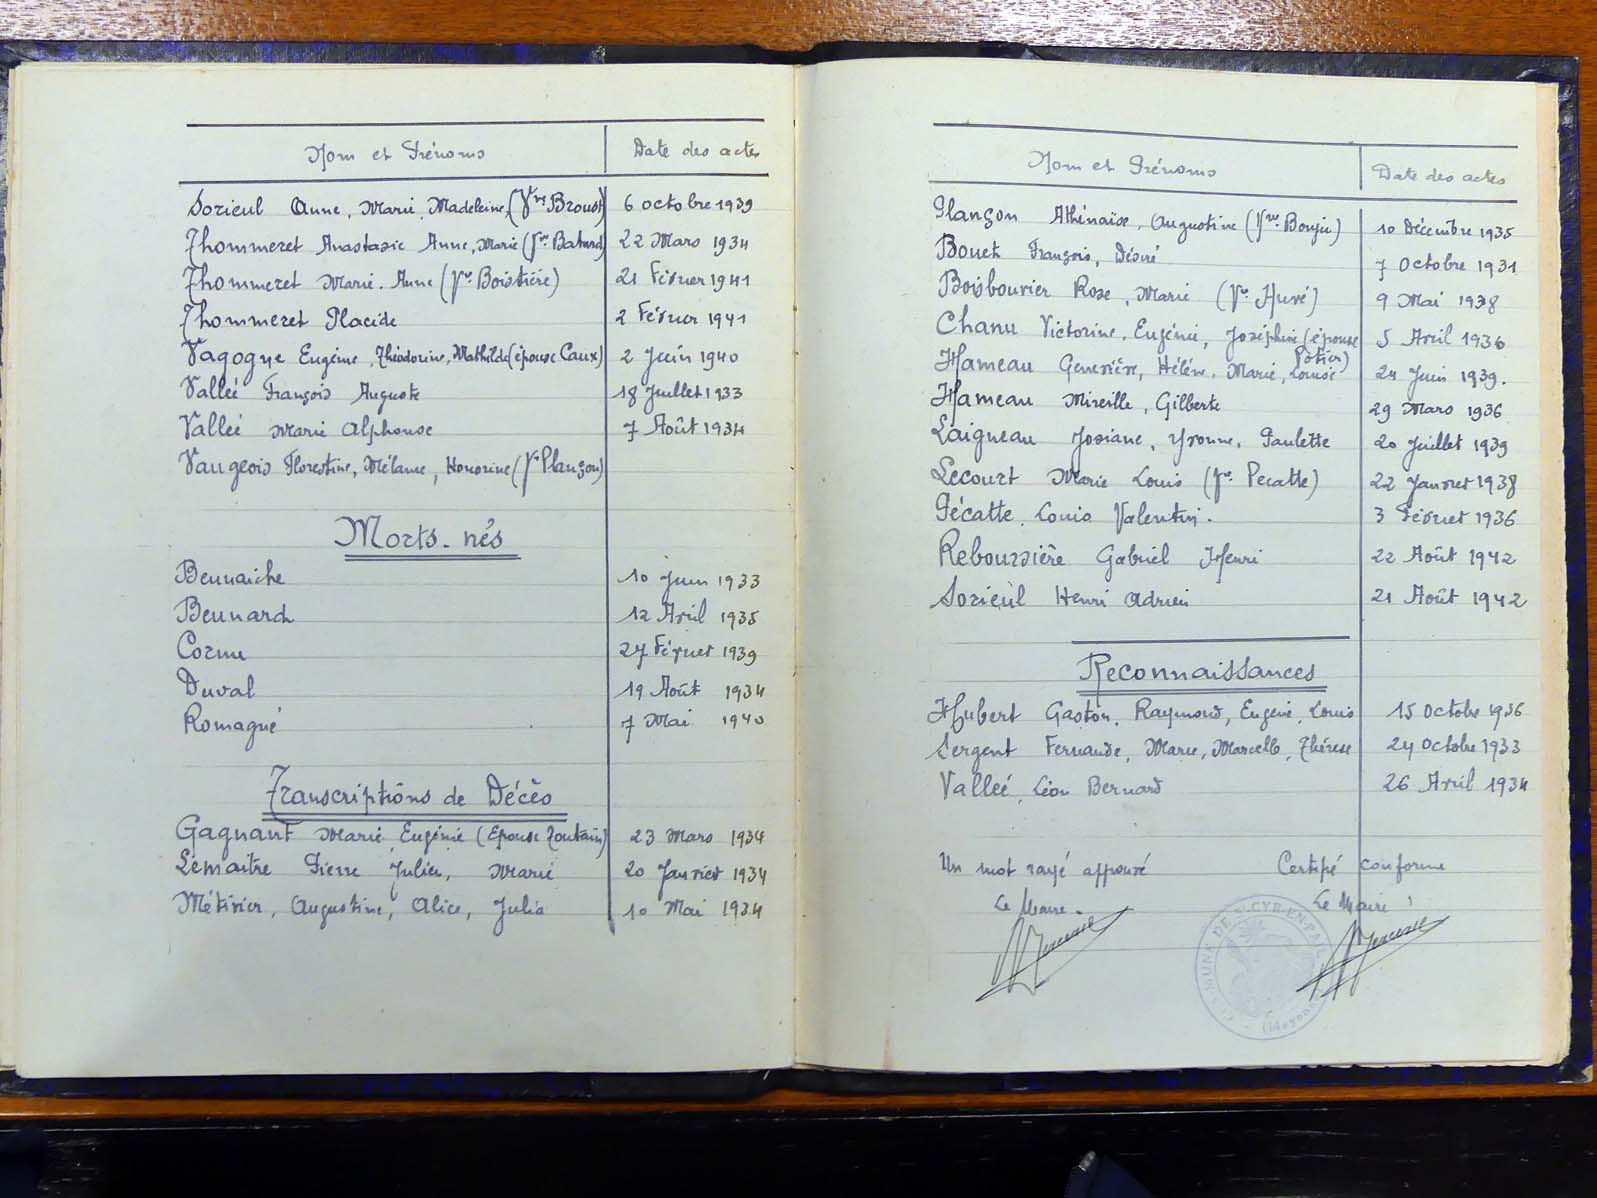 Nom et Prénoms Date des actes
Sorieul Anne, Marie, Madeleine, (Vve Broust) 6 octobre 1939
Thommeret Anastasie Anne, Marie (Vve Batard) 22 Mars 1934
Thommeret Marie. Anne (Ve Boistière) 21 Février 1941
Thommeret Placide 2 Février 1941
Vagogne Eugénie, Théodorine, Mathilde (épouse Caux) 2 Juin 1940
Vallée François Auguste 18 Juillet 1933
Vallée Marie Alphonse 7 Août 1934
Vaugeois Florestine, Mélanie, Honorine (Ve Plançon)
Morts-nés
Bennaiche 10 Juin 1933
Bennard 12 Avril 1935
Cornu 27 Février 1939
Duval 19 Août 1934
Romagné 7 Mai 1940
Transcriptions de Décès
Gagnant Marie Eugénie (Epouse Toutain) 23 Mars 1934
Lemaitre Pierre Julien, Marie 20 Janvier 1934
Métivier, Augustine, Alice, Julia 10 Mai 1934
Nom et Prénoms Date des actes
Plançon Athénaïse, Augustine (Vve Bouju) 10 Décembre 1935
Bouet François, Désiré 7 Octobre 1931
Boisbouvier Rose, Marie (Ve Huré) 9 Mai 1938
Chanu Victorine, Eugénie, Joséphine (épouse Potier) 5 Avril 1936
Hameau Geneviève, Hélène, Marie, Louise 24 Juin 1939.
Hameau Mireille, Gilberte 29 Mars 1936
Laigneau Josiane, Yvonne, Paulette 20 Juillet 1939
Lecourt Marie Louis (Ve Pecatte) 22 Janvier 1938
Pécatte Louis Valentin. 3 Février 1936
Reboussière Gabriel Henri 22 Août 1942
Sorieul Henri Adrien 21 Août 1942
Reconnaissances
Hubert Gaston, Raymond, Eugène, Louis 15 Octobre 1936
Sergent Fernande, Marie, Marcelle, Thérèse 24 Octobre 1933
Vallée, Léon Bernard 26 Avril 1934
Un mot rayé approuvé Certifié conforme
Le Maire. Le Maire
COMMUNE DE ST CYR-EN-PAIL
(Mayenne)